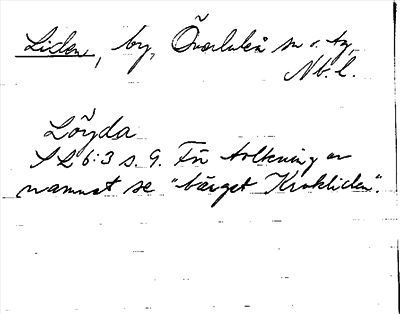 Liden, by, Överluleå sn o. tg,
Nb. l.
Löyda
SL 6:3 s. 9. För tolkning av
namnet se "bärget Krokliden".